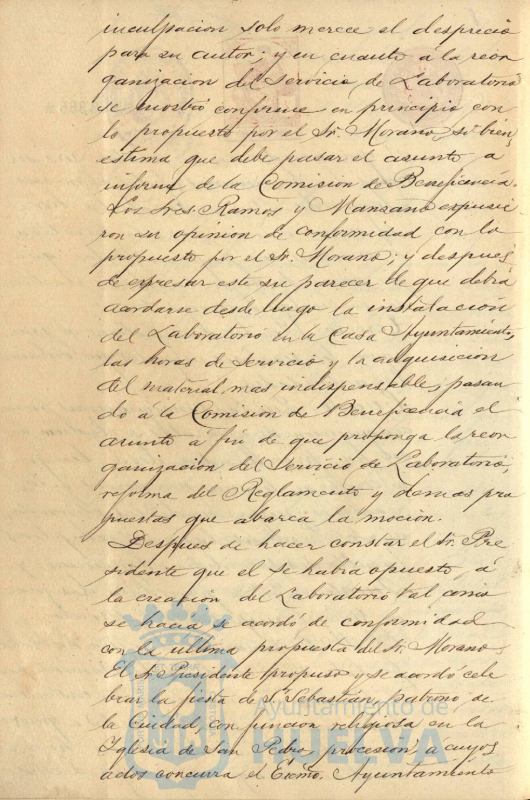 inculpacion solo merece el desprecio
para su autor; y en cuanto á la reor
ganizacion del Servicio de Laboratorio
se mostró conforme en principio con
lo propuesto por el Sr. Morano, si bien
estima que debe pasar el asunto, a
informe de la Comision de Beneficencia.
Los Sres. Ramos y Manzano expusie
ron su opinion de conformidad con lo
propuesto por el Sr. Morano; y despues
de expresar este su parecer de que debia
acordarse desde luego la instalación
del Laboratorio en la Casa Ayuntamiento,
las horas de servicio y la adquisicion
del material mas indispensable, pasan
do á la Comision de Beneficencia el
asunto á fin de que proponga la reor
ganización del Servicio de Laboratorio,
reforma del Reglamento y demas pro
puestas que abarca la mocion.
Despues de hacer constar el Sr. Pre
sidente que el se habia opuesto, á
la creacion del Laboratorio tal como
se hacia se acordó de conformidad
con la ultima propuesta del Sr. Morano.
El Sr. Presidente propuso y se acordó cele
brar la fiesta de S. Sebastián, patrono de
la Ciudad, con funcion religiosa en la
Iglesia de San Pedro, procesión, a cuyos
actos concurra el Excmo. Ayuntamiento
Ayuntamiento de
HUELVA